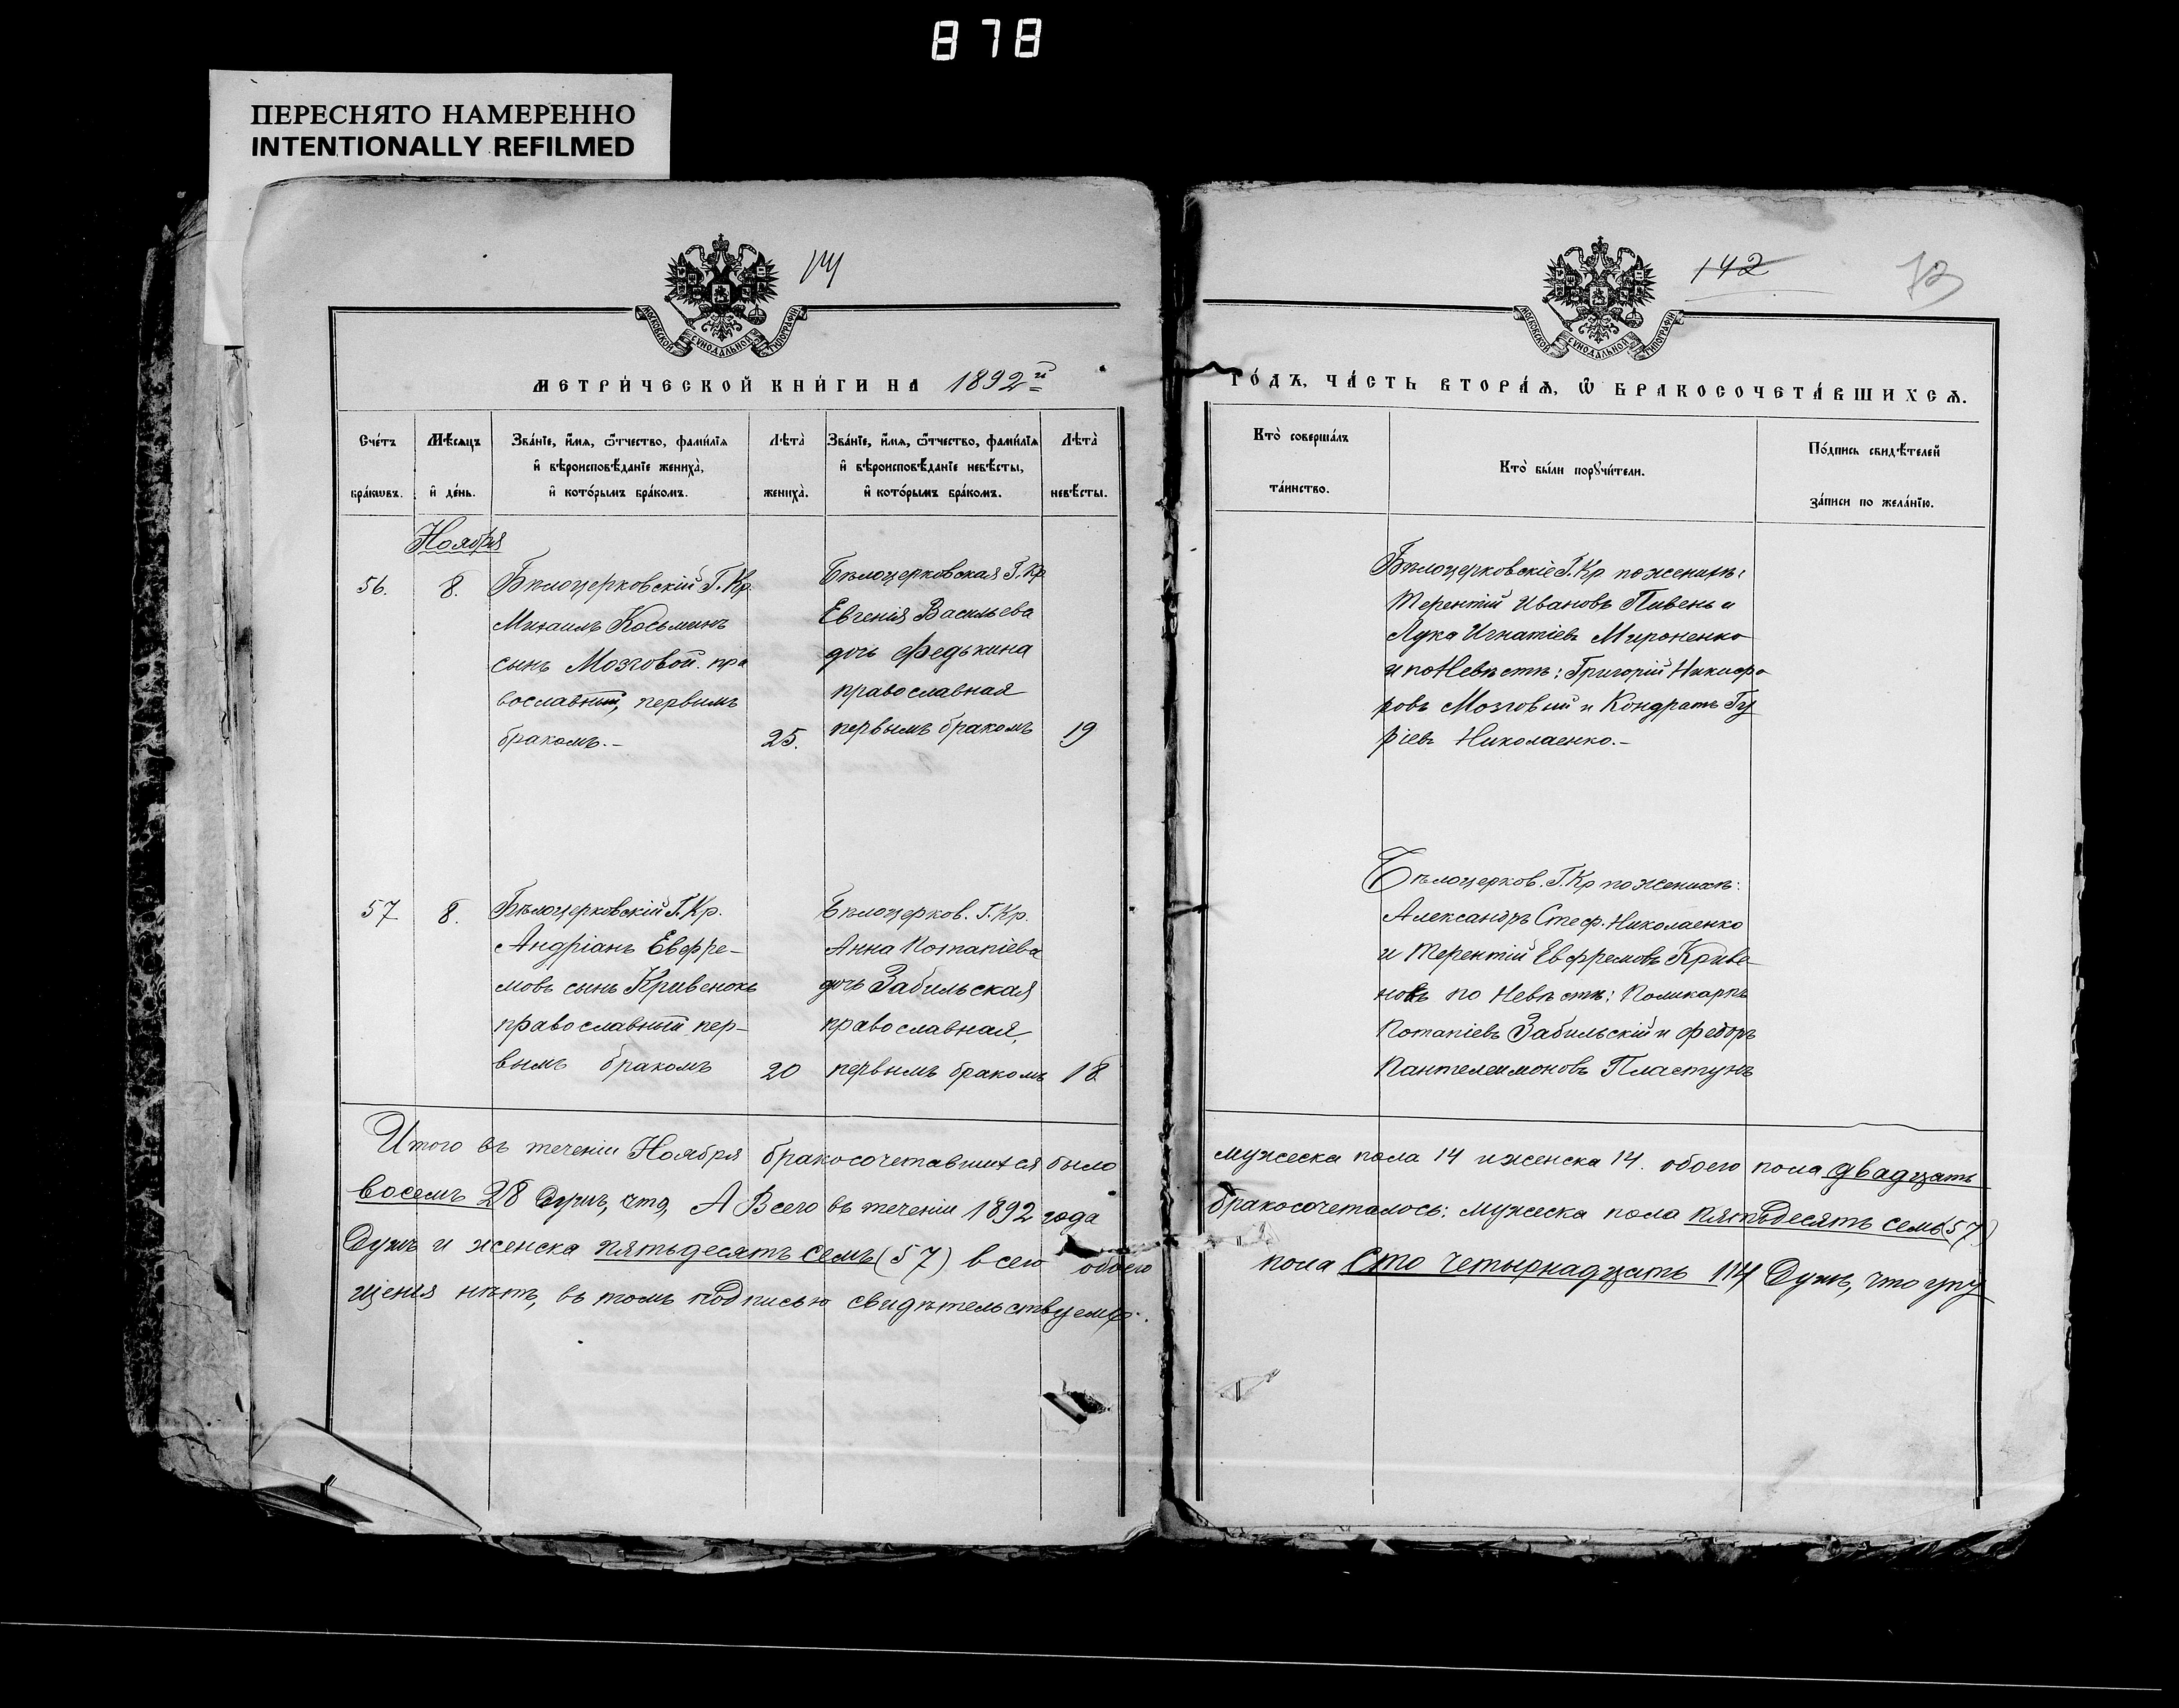 878
ПЕРЕСНЯТО НАМЕРЕННО
INTENTIONALLY REFILMED
МОСКОВСКОЙ СУНОДАЛЬНОЙ ТИПОГРАФІИ
МЕТРИ́ЧЕСКОЙ КНИ́ГИ НА 1892й
Сче́тъ бра́кѡвъ.
Мѣ́сяцъ и҆ де́нь.
Зва́нїе, и҆́мя, ѻ҆́тчество, фами́лїя
и҆ вѣроисповѣ́данїе жениха̀,
и҆ кото́рымъ бра́комъ.
Лѣта̀ жениха̀.
Зва́нїе, и҆́мя, ѻ҆́тчество, фами́лїя
и҆ вѣроисповѣ́данїе невѣ́сты,
и҆ кото́рымъ бра́комъ.
Лѣта̀ невѣ́сты.
Ноября
56.
8.
Бѣлоцерковскій Г. Кр.
Михаилъ Косьминъ
сынъ Мозговой. пра
вославный, первымъ
бракомъ.-
25.
Бѣлоцерковская Г. Кр
Евгенія Васильева
дочь Федькина
православная
первымъ бракомъ
19
57
8.
Бѣлоцерковскій Г. Кр.
Андріанъ Евфре-
мовъ сынъ Кривенокъ
православный пер-
вымъ бракомъ
20
Бѣлоцерков. Г. Кр.
Анна Потапіева
дочь Забильская
православная,
первымъ бракомъ
18
Итого въ теченіи Ноября бракосочетавшихся было
восемъ 28 душъ, что, А Всего въ теченіи 1892 года
Душъ и женска пятьдесятъ семь (57) всего обоего
щенія нѣтъ, въ томъ подписью свидѣтельствуемъ.
142
МОСКОВСКОЙ СУНОДАЛЬНОЙ ТИПОГРАФІИ
ГО́ДЪ, ЧА́СТЬ ВТОРА́Ѧ, Ѽ БРАКОСОЧЕТА́ВШИХСѦ.
Кто̀ соверша́лъ та́инство.
Кто̀ бы́ли порꙋчи́тели.
По́дпись свидѣ́телей за́писи по жела́нїю.
Бѣлоцерковскіе Г. Кр по женихѣ:
Терентій Ивановъ Пивень и
Лука Игнатіевъ Мироненко
и по Невѣстѣ: Григорій Никифо
ровъ Мозговый и Кондратъ Гу
ріевъ Николаенко.-
Бѣлоцерков. Г. Кр по женихѣ:
Александръ Стеф. Николаенко
и Терентій Евфремовъ Криве
нокъ по Невѣстѣ: Поликарпъ
Потапіевъ Забильскій и Федоръ
Пантелеимоновъ Пластунъ
мужеска пола 14 и женска 14. обоего пола двадцать
бракосочеталось: мужеска пола пятьдесятъ семь (57)
пола Сто четырнадцать 114 Душъ, что